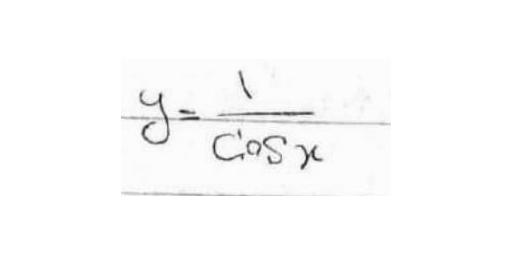 y = 1/cos x